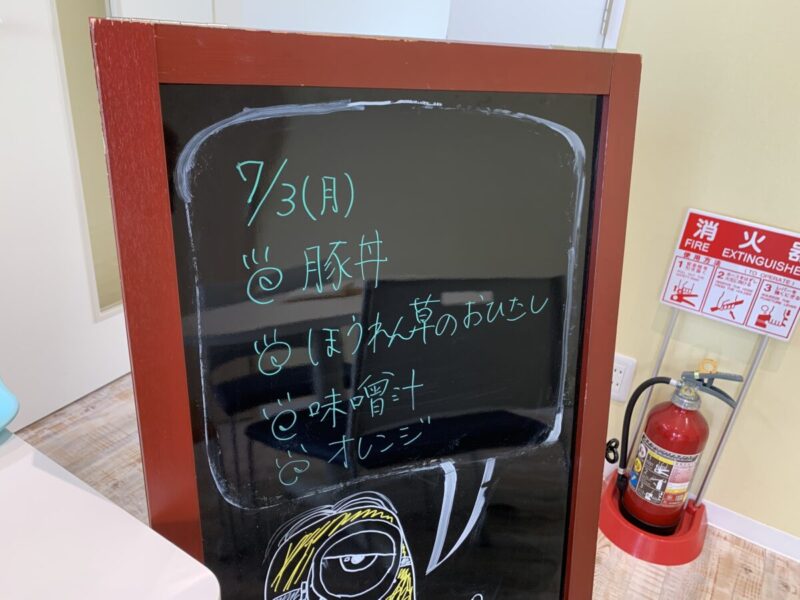 7/3(月)
豚丼
ほうれん草のおひたし
味噌汁
オレンジ
消火器
FIRE EXTINGUISHER
使用方法
(TO OPERATE)
1
2
3